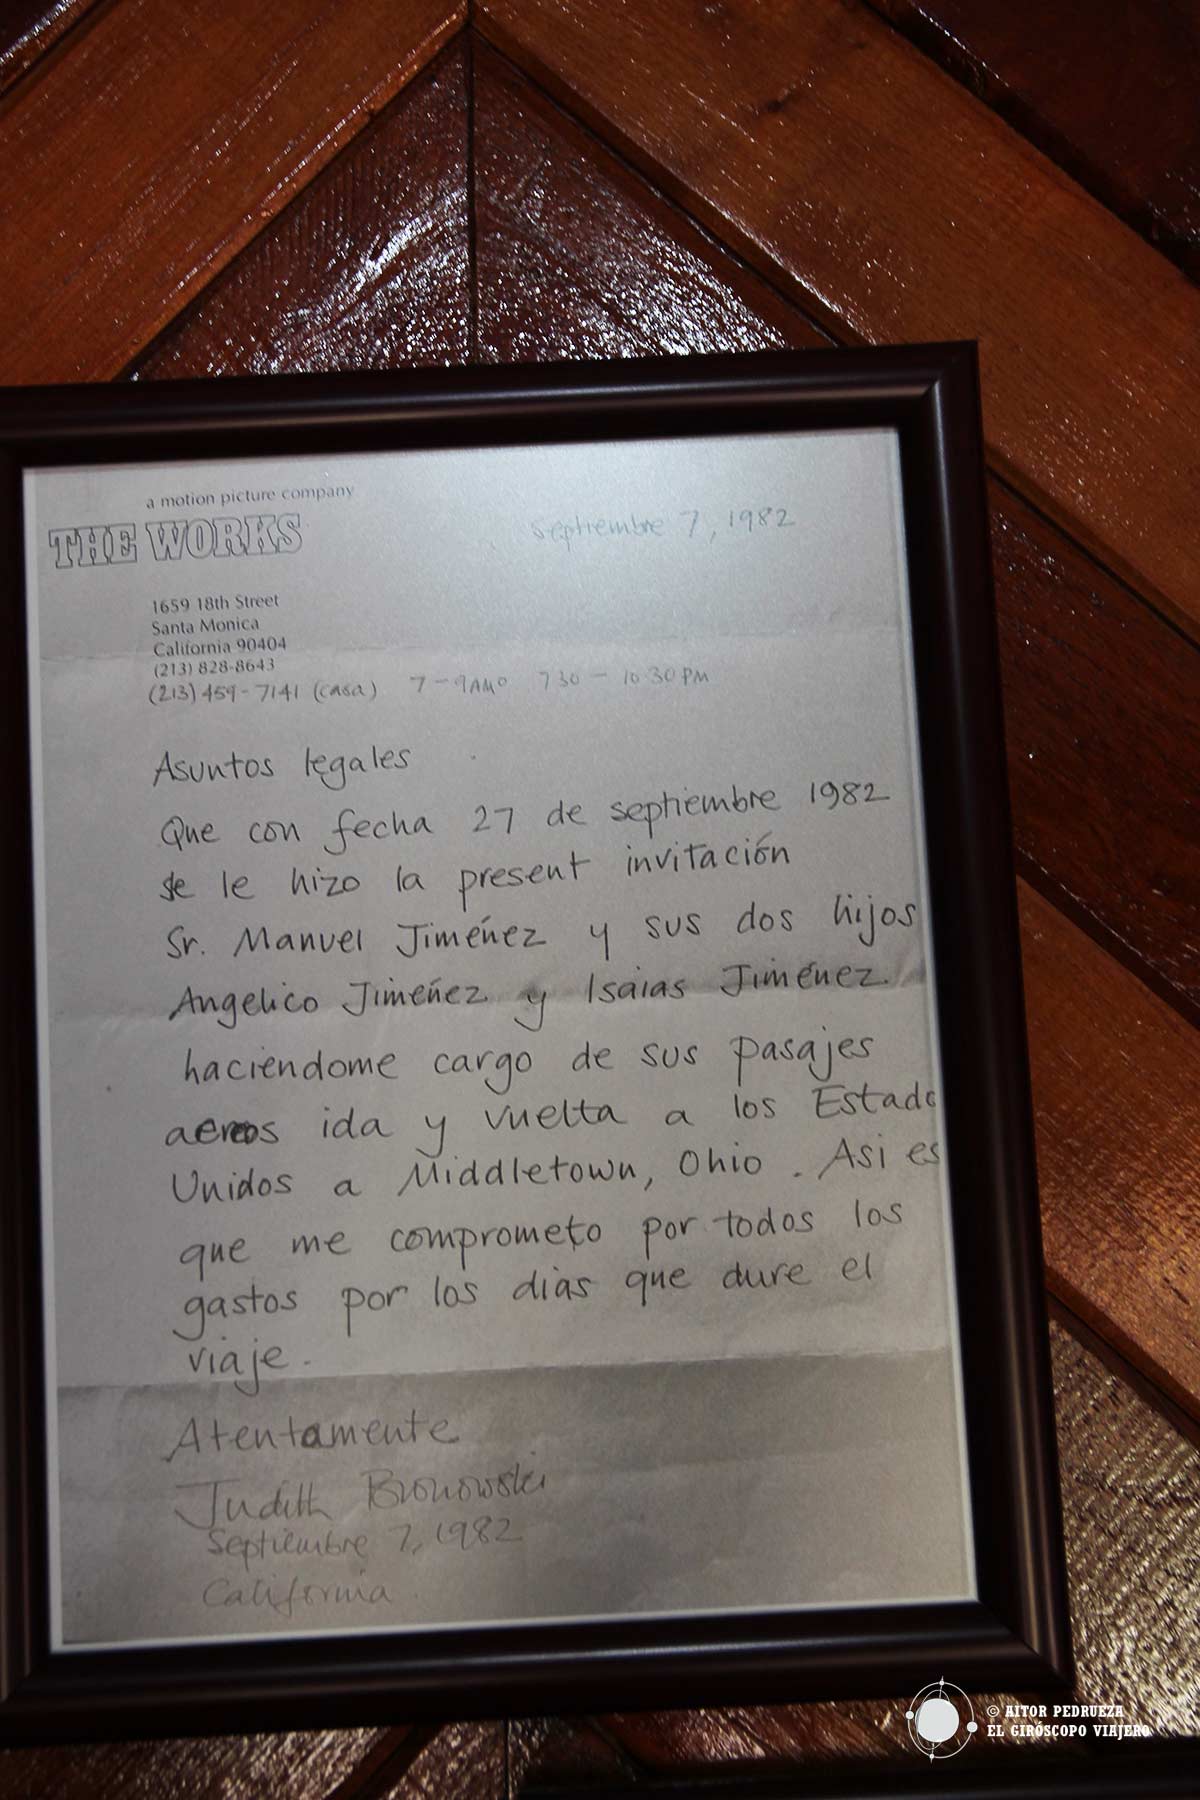 a motion picture company
THE WORKS
septiembre 7, 1982
1659 18th Street
Santa Monica
California 90404
(213) 828-8643
(213) 459-7141 (casa) 7-9AM o 730 - 10:30 PM
Asuntos legales
Que con fecha 27 de septiembre 1982
se le hizo la present invitación
Sr. Manuel Jiménez y sus dos hijos
Angelico Jiménez y Isaias Jiménez
haciéndome cargo de sus pasajes
aereos ida y vuelta a los Estado
Unidos a Middletown, Ohio. Asi es
que me comprometo por todos los
gastos por los dias que dure el
viaje.
Atentamente
Judith Bronowski
Septiembre 7, 1982
California
© AITOR PEDRUEZA
EL GIRÓSCOPO VIAJERO